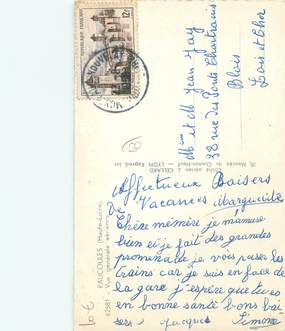 REPUBLIQUE FRANÇAISE
12F
Mme et M Jean Jay
38 rue des Ponts Chartrains
Blois
Loir et Cher
BEAUZAC (Haute-Loire)
Vue générale aérienne
Cliché aérien J. CELLARD
LYON - Reprod. Int.
Affectueux Baisers
de Vacances Marguerite
Chère mémère je m'amuse
bien et je fait des grandes
promenade je vois passer les
trains car je suis en face de
la gare j'espère que tu es
en bonne santé bons bai
sers Jacques Simone